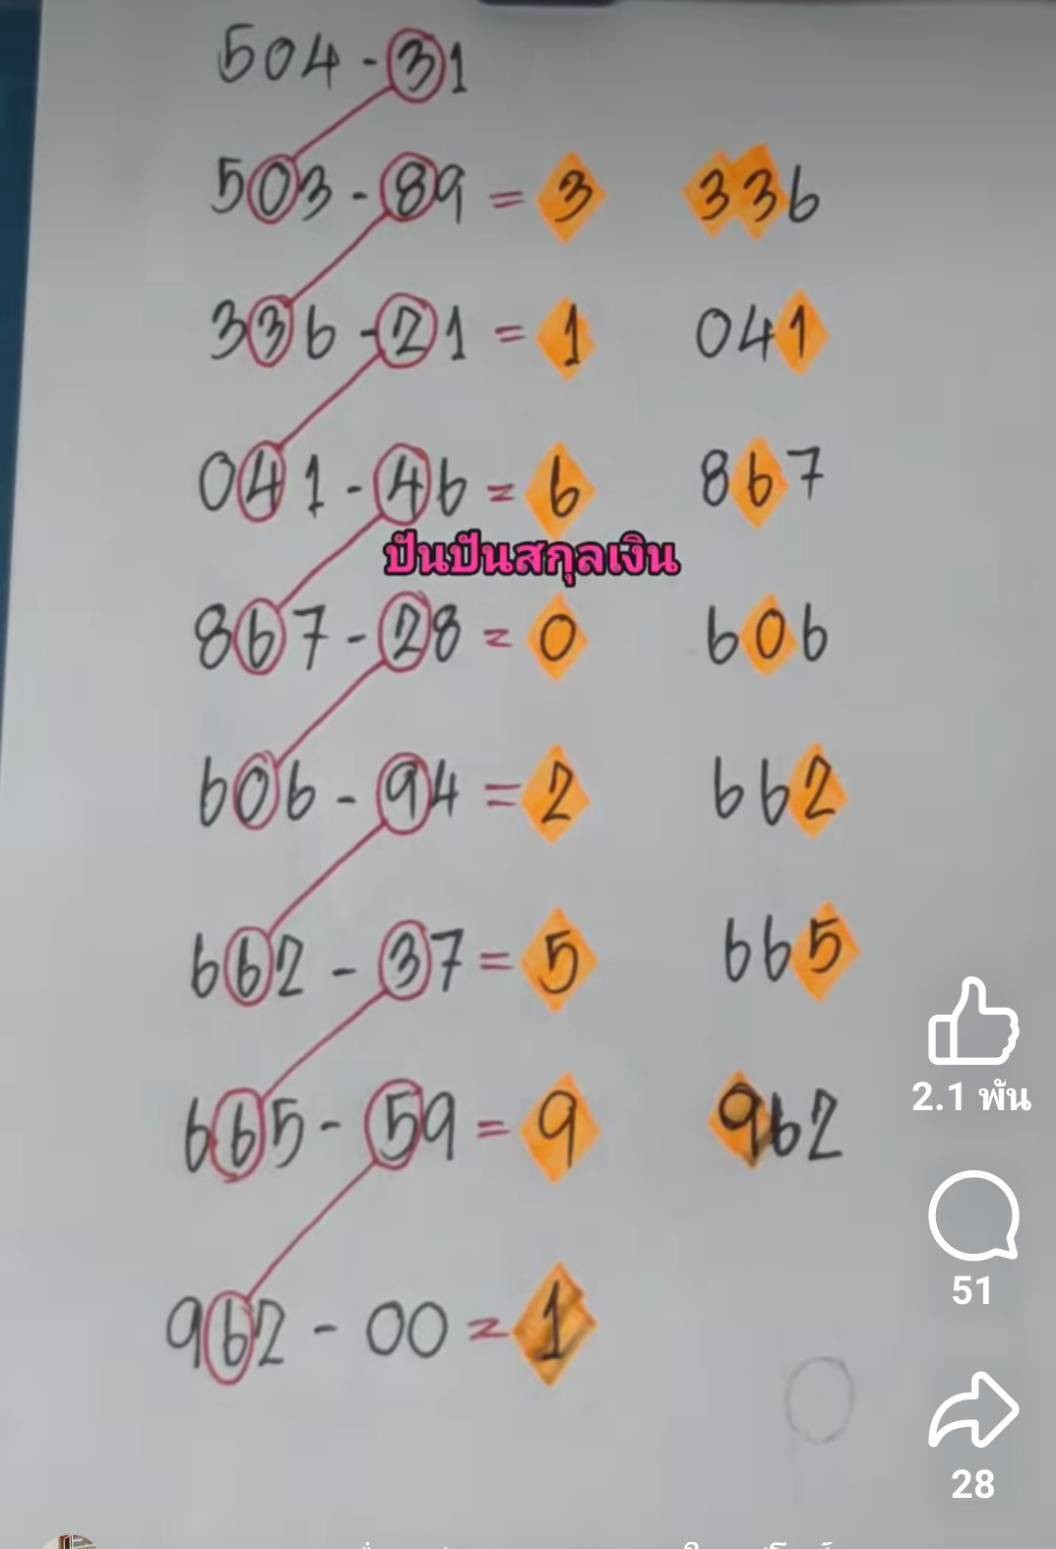 504-31
503-89=3 336
336-21=1 041
041-46=6 867
ปันปันสกุลเงิน
867-28=0 606
606-94=2 662
662-37=5 665
665-59=9 962
2.1 พัน
962-00=1
51
0
28